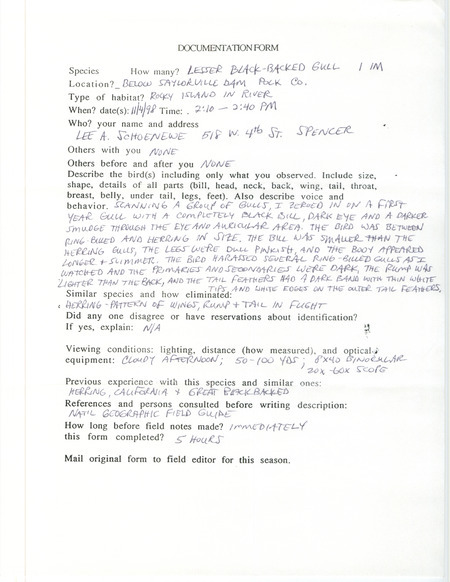 DOCUMENTATION FORM
Species How many? LESSER BLACK-BACKED GULL 1 1M
Location? BELOW SAYLORVILLE DAM POLK CO.
Type of habitat? ROCKY ISLAND IN RIVER
When? date(s): 11/4/98 Time: . 2:10 - 2:40 PM
Who? your name and address
LEE A. SCHOENEWE 518 W. 4th ST. SPENCER
Others with you NONE
Others before and after you NONE
Describe the bird(s) including only what you observed. Include size,
shape, details of all parts (bill, head, neck, back, wing, tail, throat,
breast, belly, under tail, legs, feet). Also describe voice and
behavior. SCANNING A GROUP OF GULLS, I ZEROED IN ON A FIRST
YEAR GULL WITH A COMPLETELY BLACK BILL, DARK EYE AND A DARKER
SMUDGE THROUGH THE EYE AND AURICULAR AREA. THE BIRD WAS BETWEEN
RING-BILLED AND HERRING IN SIZE, THE BILL WAS SMALLER THAN THE
HERRING GULLS, THE LEGS WERE DULL PINKISH, AND THE BODY APPEARED
LONGER + SLIMMER. THE BIRD HARASSED SEVERAL RING-BILLED GULLS AS I
WATCHED AND THE PRIMARIES AND SECONDARIES WERE DARK, THE RUMP WAS
LIGHTER THAN THE BACK, AND THE TAIL FEATHERS HAD A DARK BAND WITH THIN WHITE
TIPS AND WHITE EDGES ON THE OUTER TAIL FEATHERS.
Similar species and how eliminated:
HERRING - PATTERN OF WINGS, RUMP + TAIL IN FLIGHT
Did any one disagree or have reservations about identification?
If yes, explain: N/A
Viewing conditions: lighting, distance (how measured), and optical
equipment: CLOUDY AFTERNOON; 50-100 YDS; 8X40 BINOCULAR
20X-60X SCOPE
Previous experience with this species and similar ones:
HERRING, CALIFORNIA + GREAT BLACK BACKED
References and persons consulted before writing description:
NAT'L GEOGRAPHIC FIELD GUIDE
How long before field notes made? IMMEDIATELY
this form completed? 5 HOURS
Mail original form to field editor for this season.